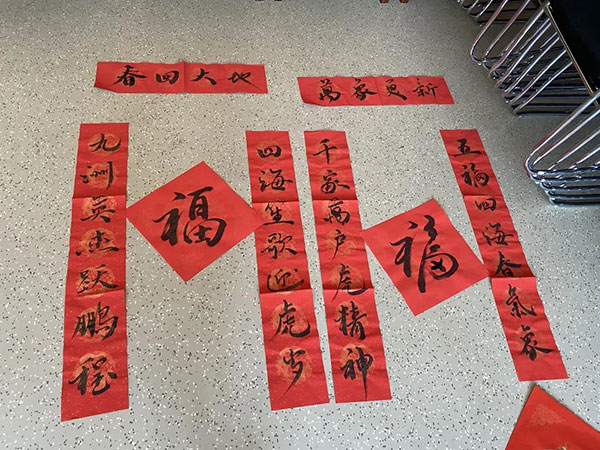 春回大地
萬象更新
九洲英杰跃鹏程
福
四海笙歌迎虎岁
千家萬户虎精神
福
五福四海春氣象